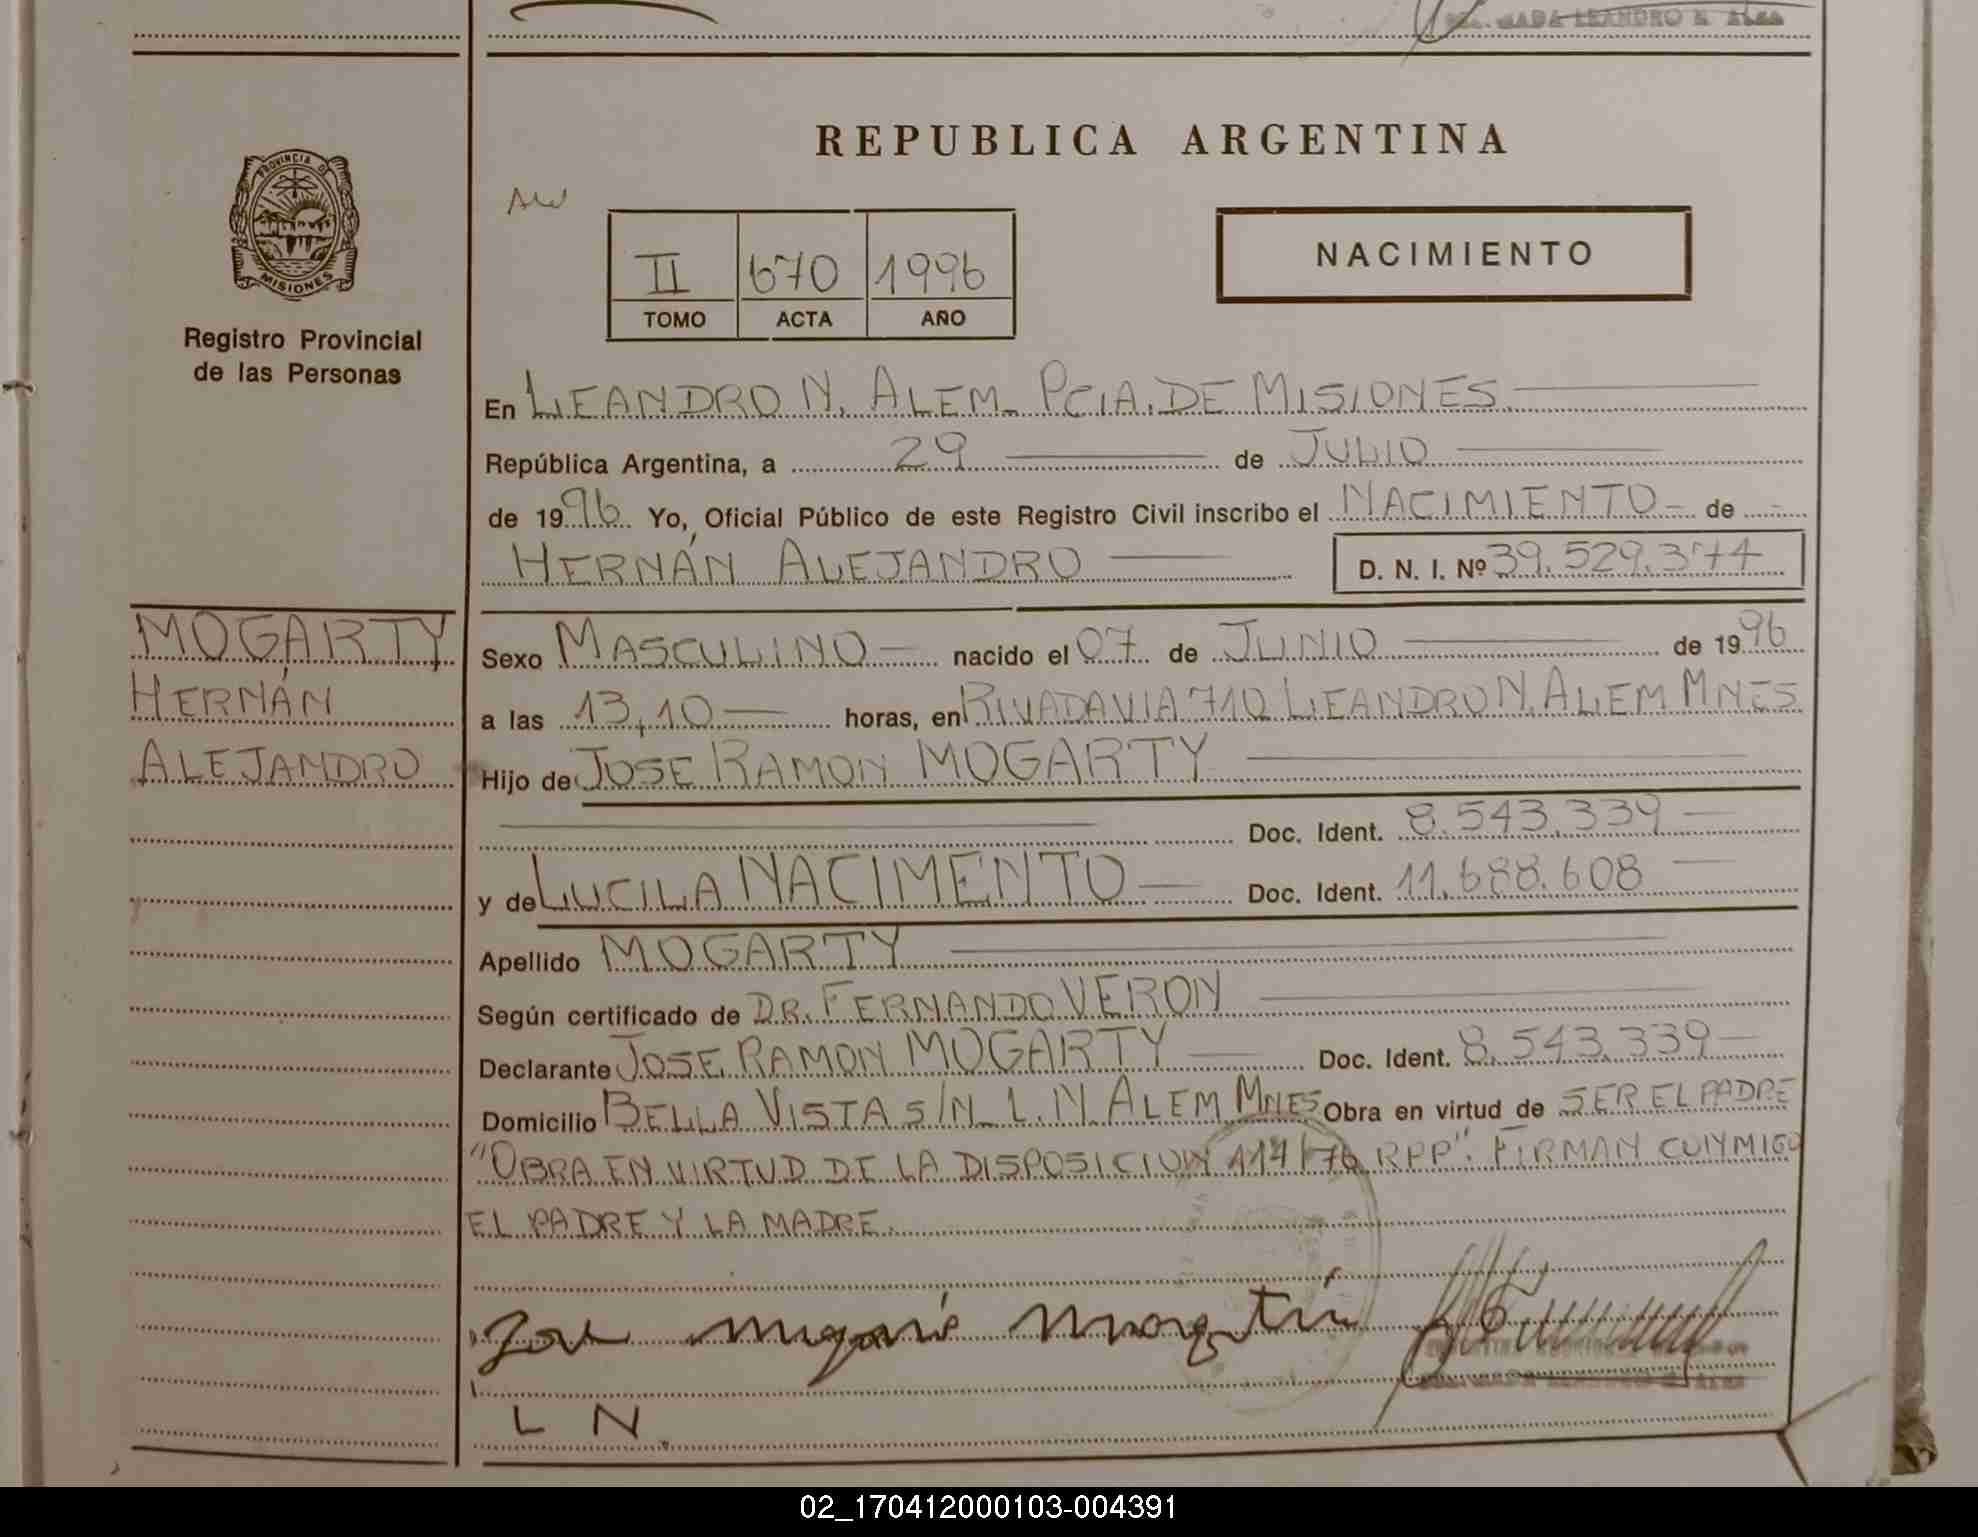 DEL. JADA LEANDRO N. ALEM
REPUBLICA ARGENTINA
PROVINCIA DE
MISIONES
Registro Provincial
de las Personas
II 670 1996
TOMO ACTA AÑO
NACIMIENTO
En LEANDRO N. ALEM. PCIA. DE MISIONES.
República Argentina, a 29 de JULIO
de 1996. Yo, Oficial Público de este Registro Civil inscribo el NACIMIENTO de
HERNÁN ALEJANDRO D. N. I. Nº 39.529.374
MOGARTY
HERNÁN
ALEJANDRO
Sexo MASCULINO nacido el 07 de JUNIO de 1996
a las 13,10 horas, en RIVADAVIA 710 LEANDRO N. ALEM MNES
Hijo de JOSE RAMON MOGARTY
Doc. Ident. 8.543.339
y de LUCILA NACIMENTO Doc. Ident. 11.688.608
Apellido MOGARTY
Según certificado de DR. FERNANDO VERON
Declarante JOSE RAMON MOGARTY Doc. Ident. 8.543.339
Domicilio BELLA VISTA S/N L.N. ALEM MNES Obra en virtud de SER EL PADRE
"OBRA EN VIRTUD DE LA DISPOSICION 114/76 RPP". FIRMAN CONMIGO
EL PADRE Y LA MADRE.
L N.
02_170412000103-004391